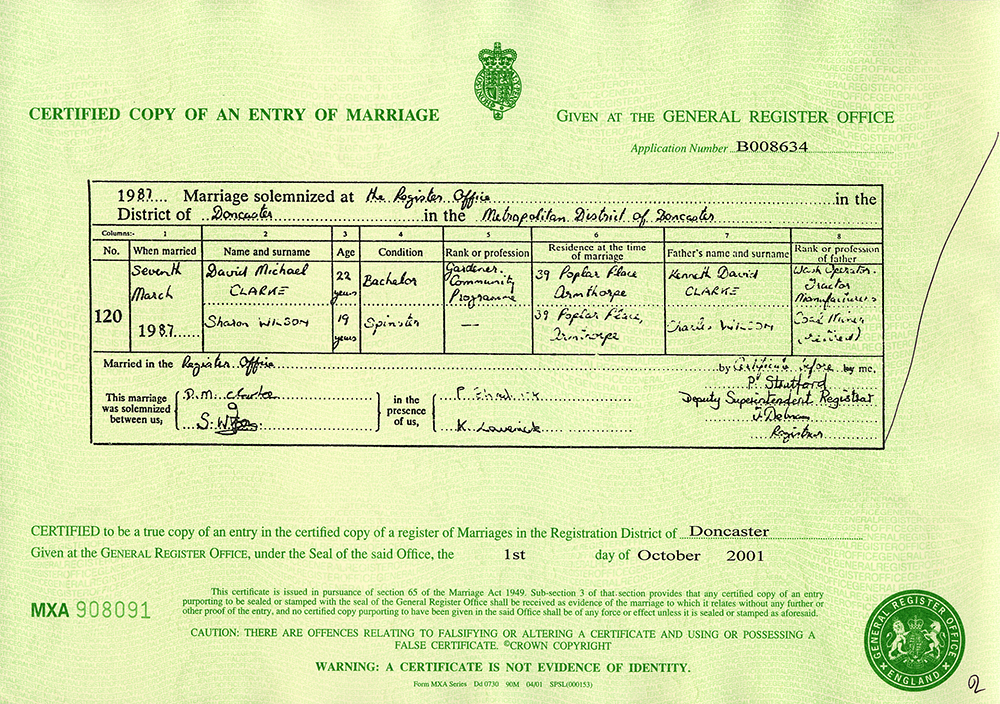 CERTIFIED COPY OF AN ENTRY OF MARRIAGE
GIVEN AT THE GENERAL REGISTER OFFICE
Application Number B008634
1987 Marriage solemnized at the Register Office in the
District of Doncaster in the Metropolitan District of Doncaster
Columns:- 1 2 3 4 5 6 7 8
No. When married Name and surname Age Condition Rank or profession Residence at the time of marriage Father's name and surname Rank or profession of father
120 Seventh March 1987
David Michael CLARKE 22 years Bachelor Gardener. Community Programme 39 Poplar Place Armthorpe Kenneth David CLARKE Operator. Tractor Manufacturers
Sharon WILSON 19 years Spinster — 39 Poplar Place, Armthorpe Charles WILSON Coal Miner (retired)
Married in the Register Office by Certificate before by me,
This marriage was solemnized between us, D. M. Clarke
S. Wilson
in the presence of us,
K.
P. Stratford
Deputy Superintendent Registrar
Registrar
CERTIFIED to be a true copy of an entry in the certified copy of a register of Marriages in the Registration District of Doncaster
Given at the GENERAL REGISTER OFFICE, under the Seal of the said Office, the 1st day of October 2001
MXA 908091
This certificate is issued in pursuance of section 65 of the Marriage Act 1949. Sub-section 3 of that section provides that any certified copy of an entry
purporting to be sealed or stamped with the seal of the General Register Office shall be received as evidence of the marriage to which it relates without any further or
other proof of the entry, and no certified copy purporting to have been given in the said Office shall be of any force or effect unless it is sealed or stamped as aforesaid.
CAUTION: THERE ARE OFFENCES RELATING TO FALSIFYING OR ALTERING A CERTIFICATE AND USING OR POSSESSING A
FALSE CERTIFICATE. ©CROWN COPYRIGHT
WARNING: A CERTIFICATE IS NOT EVIDENCE OF IDENTITY.
Form MXA Series Dd 0730 90M 04/01 SPSL(000153)
GENERAL REGISTER OFFICE
ENGLAND